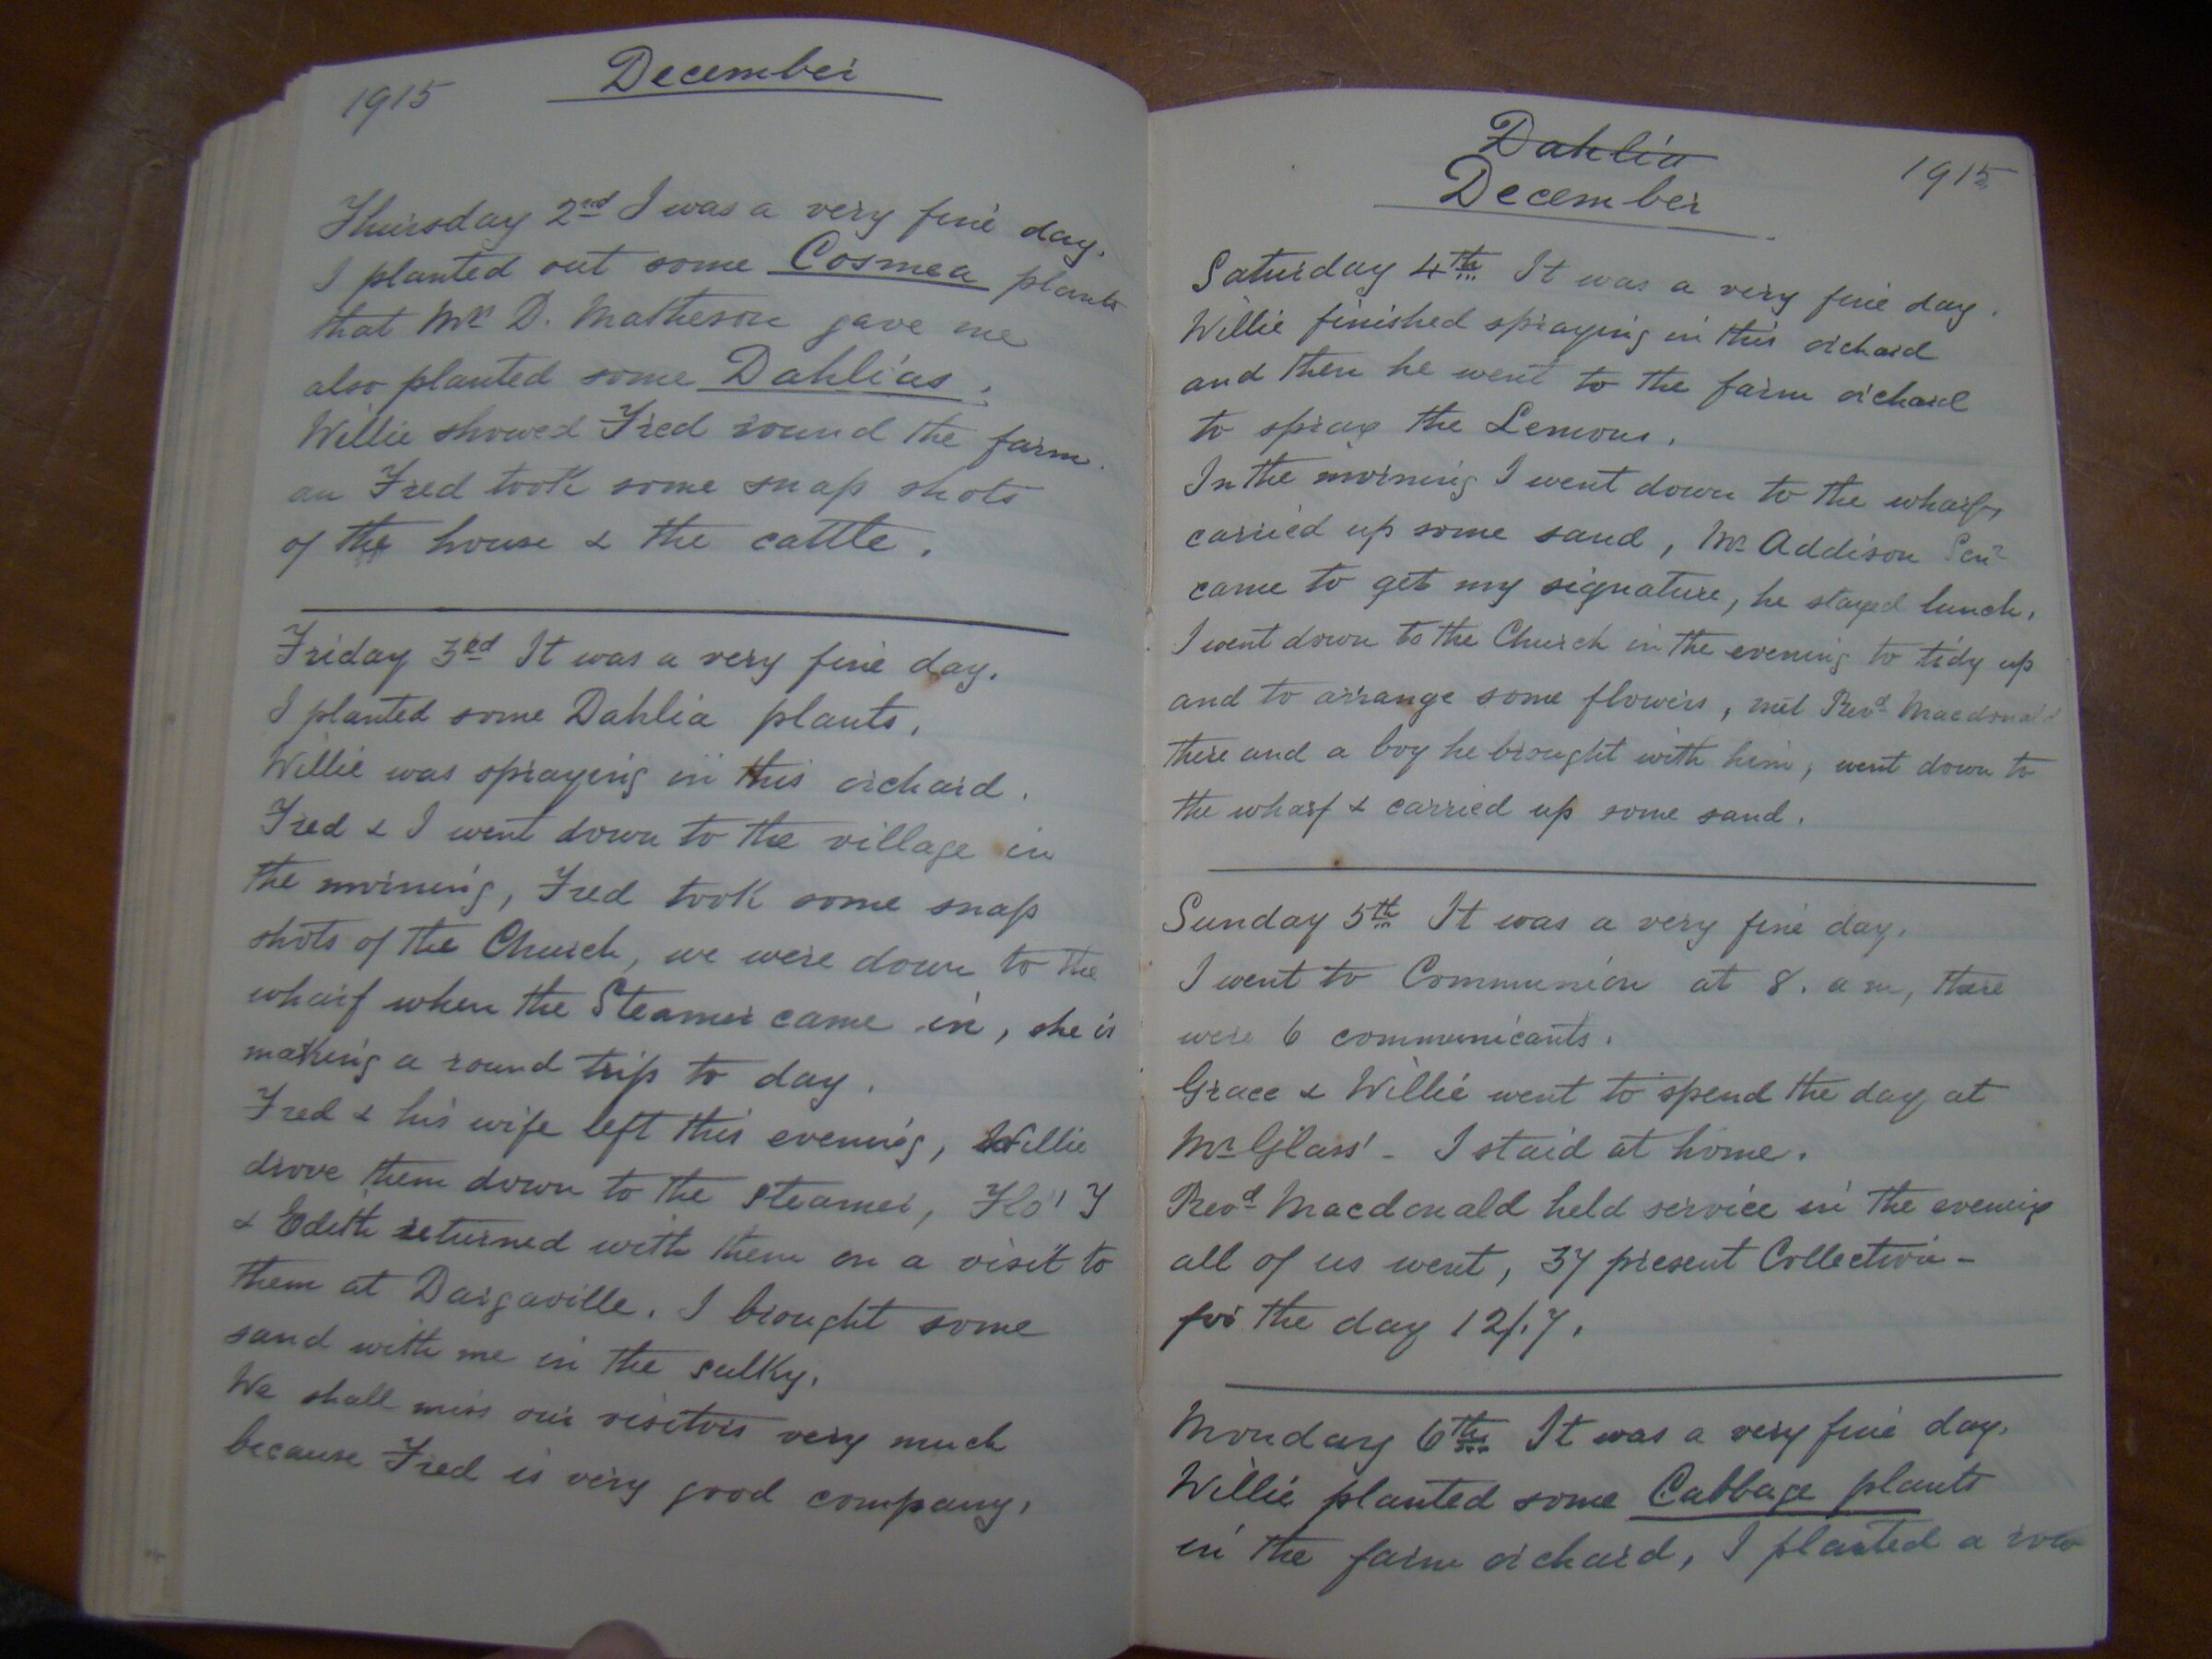 1915
December
Thursday 2nd I was a very fine day.
I planted out some Cosmea plants
that Mrs D. Matheson gave me
also planted some Dahlias.
Willie showed Fred round the farm.
an Fred took some snap shots
of the house & the cattle.
Friday 3rd It was a very fine day.
I planted some Dahlia plants.
Willie was spraying in this orchard.
Fred & I went down to the village in
the morning, Fred took some snap
shots of the Church, we were down to the
wharf when the Steamer came in, she is
making a round trip to day.
Fred & his wife left this evening, Willie
drove them down to the steamer, Flo'
& Edith returned with them on a visit to
them at Dargaville. I brought some
sand with me in the sulky.
We shall miss our visitors very much
because Fred is very good company.
Dahlia
December
1915
Saturday 4th It was a very fine day.
Willie finished spraying in this orchard
and then he went to the farm orchard
to spray the Lemons.
In the morning I went down to the wharf,
carried up some sand, Mr Addison Senr
came to get my signature, he stayed lunch.
I went down to the Church in the evening to tidy up
and to arrange some flowers, met Revd Macdonald
there and a boy he brought with him, went down to
the wharf & carried up some sand.
Sunday 5th It was a very fine day.
I went to Communion at 8. a m, there
were 6 communicants.
Grace & Willie went to spend the day at
Mr Glass' - I staid at home.
Revd Macdonald held service in the evening
all of us went, 37 present Collection -
for the day 12/.7.
Monday 6th It was a very fine day.
Willie planted some Cabbage plants
in the farm orchard, I planted a row